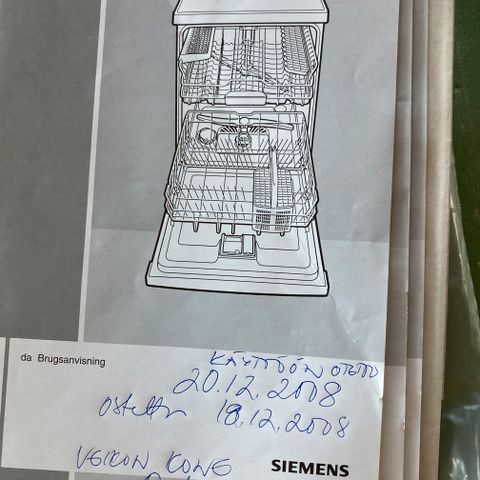 da Brugsanvisning
KÄYTTÖÖN OTETTU
20.12.2008
Ostettu 18.12.2008
VEIKON KONE
SIEMENS